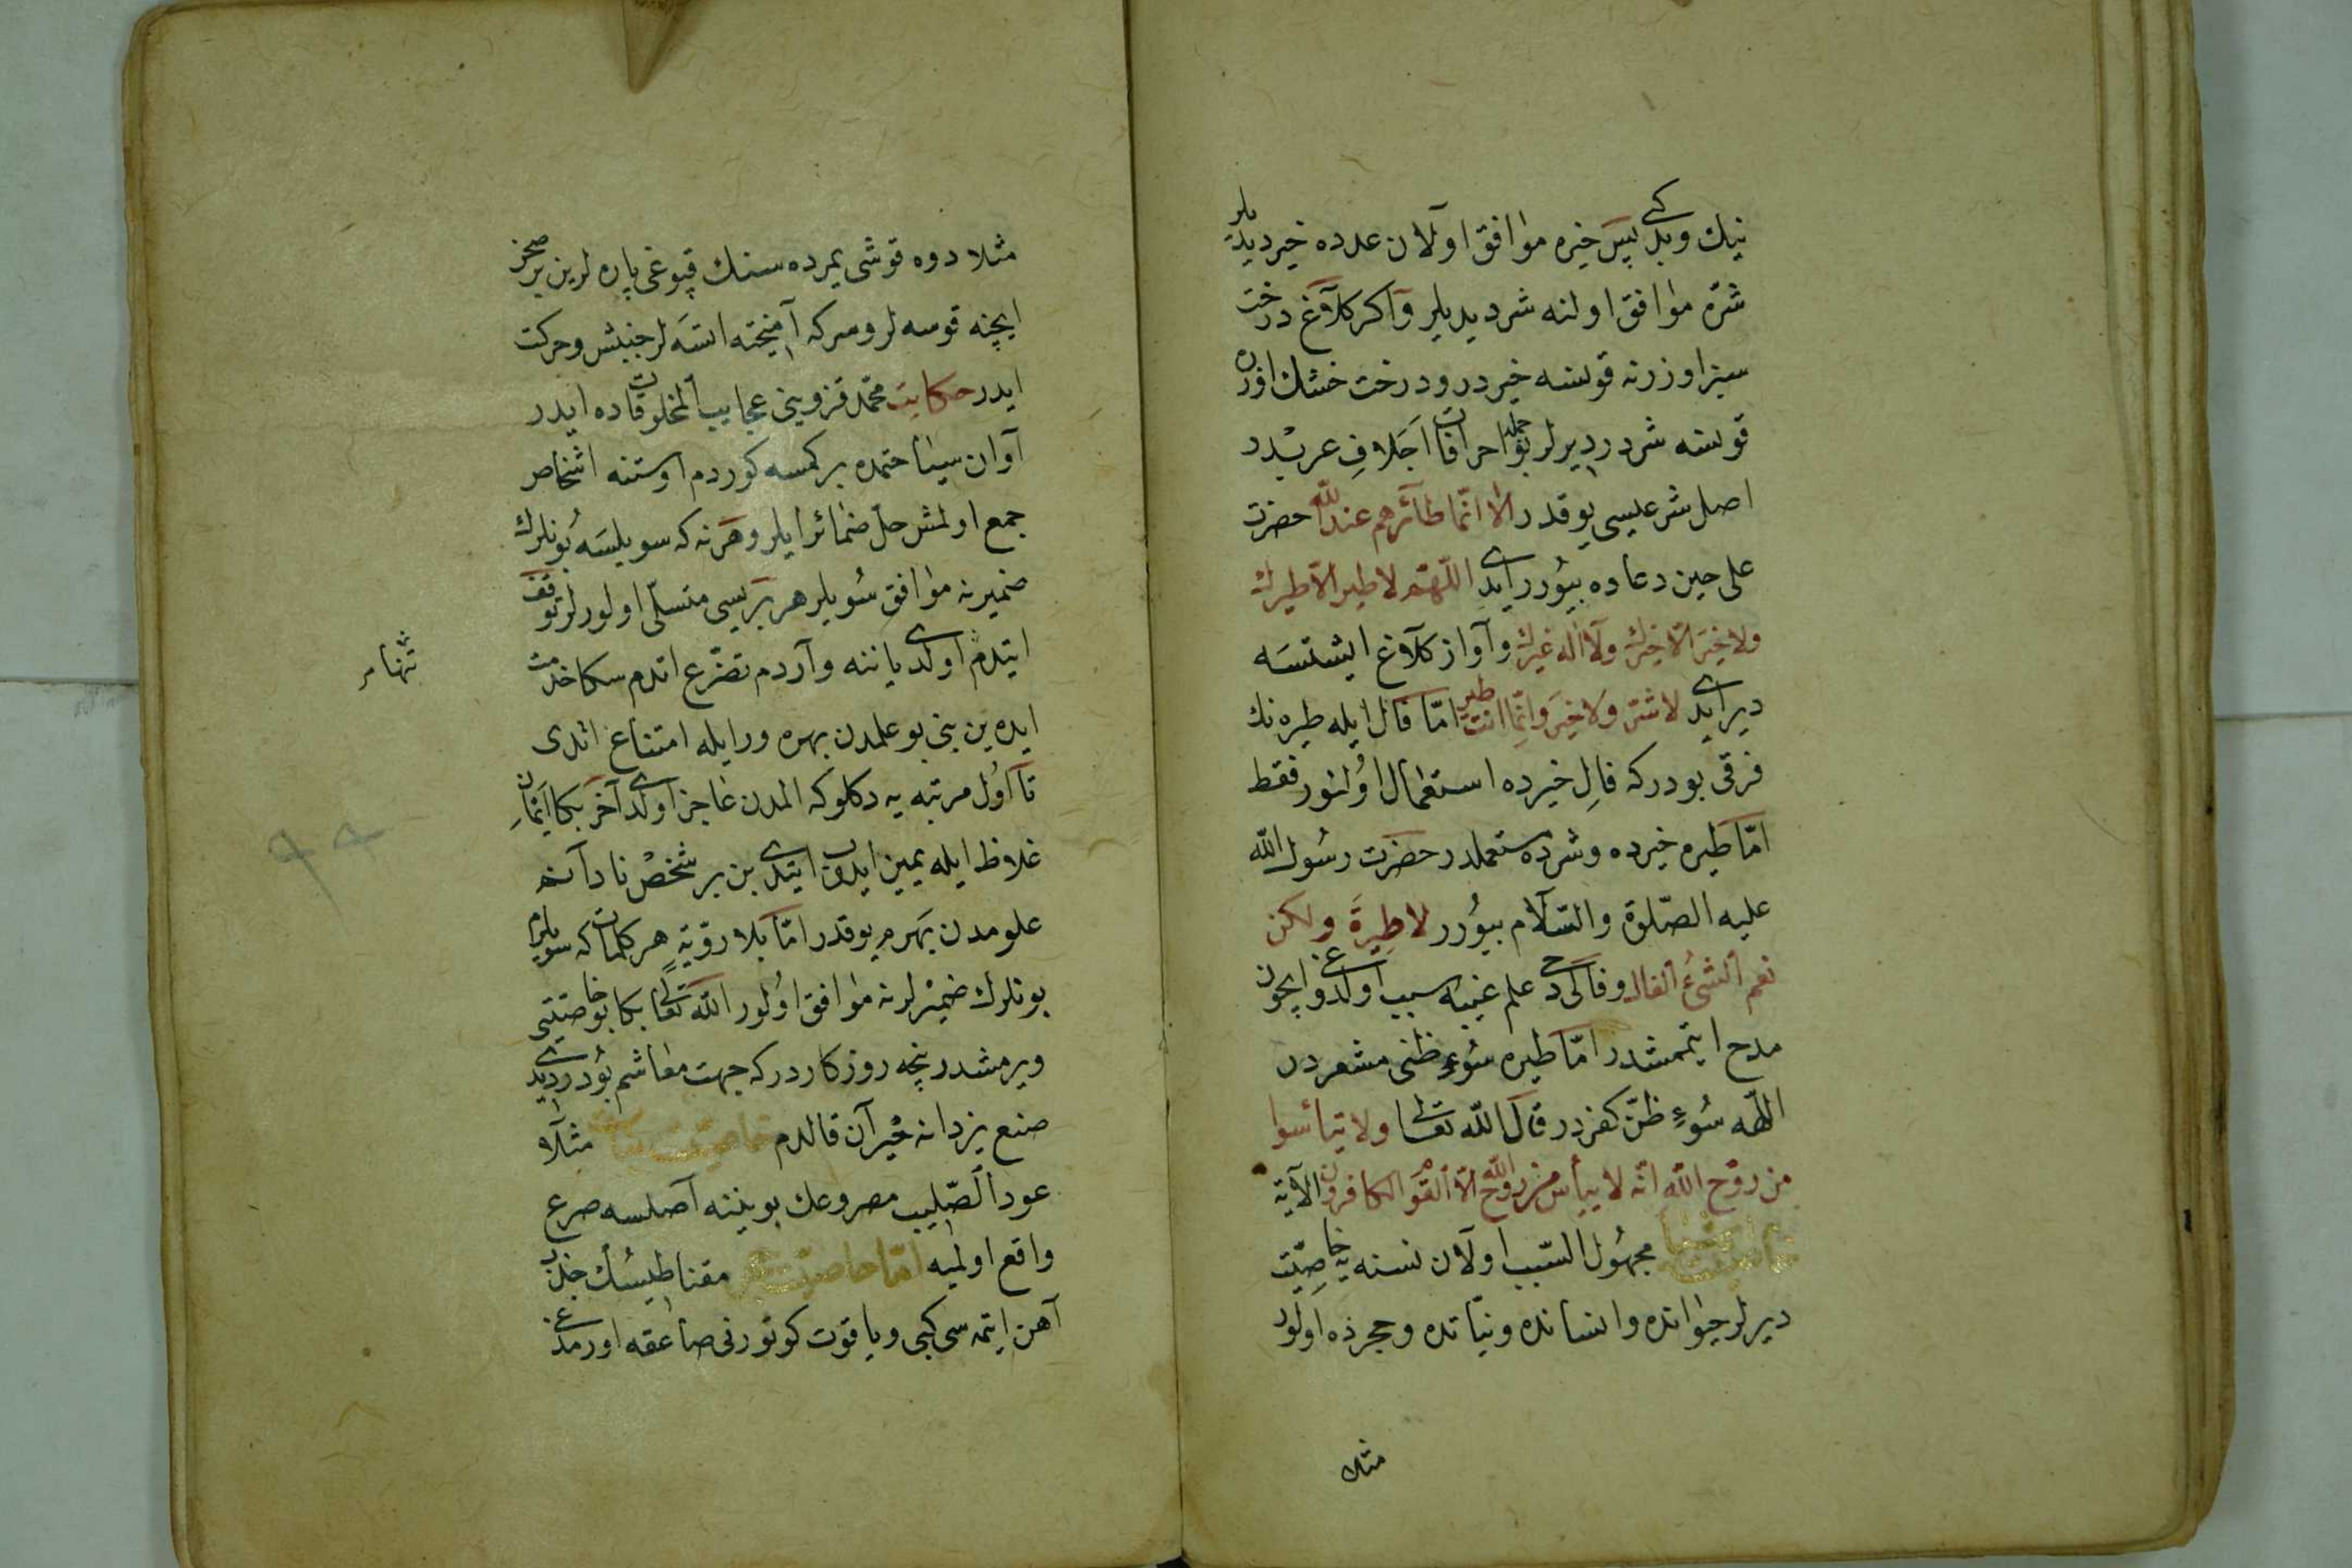 نیك وبدکبی پس خیره موافق اولان عدده خیر دیدیلر
شرّه موافق اولنه شر دیدیلر واکر کلاغ درخت
سبز اوزرنه قونسه خیردر ودرخت خشك اوزره
قونسه شردر دیرلر بوجمله احرافات اجلاف عربدر
اصل شرعیسی یوقدر الا انّما طآئرهم عند الله حضرت
علی حین دعاده بیورر ایدی اللّهمّ لا طیر الّا طیرك
ولا خیر الّا خیرك ولا اله غیرك وآواز کلاغ ایشتسه
دیر ایدی لا شرّ ولا خیر وانّما انت طیر امّا فال ایله طیره نك
فرقی بودرکه فال خیرده استعمال اولنور فقط
امّا طیره خیرده وشرده مستعملدر حضرت رسول الله
علیه الصّلوة والسّلام بیورر لا طیرة ولکن
نعم الشئ الفال وفال کی علم غیبه سبب اولدوغی ایچون
مدح ایتمشدر امّا طیره سوء ظنی مشعردر
اللّهه سوء ظنّ کفردر قال الله تعالی ولا تیأسوا
من روح الله انّه لا ییأس من روح الله الّا القوم الکافرون الآیة
مجهول السّبب اولان نسنه یه خاصیّت
دیرلر حیوانده وانسانده ونباتده وحجرده اولور
مثلا
مثلا دوه قوشی یمرده سنك قپوغی پاره لرین بر صخر
ایچنه قوسه لر وسرکه آمیخته ایتسه لر جنبش وحرکت
ایدر حکایت محمّد قزوینی عجایب المخلوقاتده ایدر
آوان سیاحتمده بر کمسه کوردم اوستنه اشخاص
جمع اولمش حلّ ضمائر ایلر وهر نه که سویلسه بونلرك
ضمیرنه موافق سویلر هر بریسی متسلّی اولورلر توقف
ایتدم اولدی یاننه واردم تضرّع ایتدم سکا خدمت
تنها
ایده ین بنی بو علمدن بهره ور ایله امتناع اتدی
تا اول مرتبه یه دکلوکه المدن عاجز اولدی آخر بکا ایمان
غلاظ ایله یمین ایدوب ایتدی بن بر شخص نادانم
علومدن بهرم یوقدر امّا بلا رویّة هر کلماتکه سویلرم
بونلرك ضمیرلرنه موافق اولور الله تعالی بکا بو خاصیّتی
ویرمشدر نیچه روزکاردرکه جهت معاشم بودر دیدی
صنع یزدانه حیران قالدم خاصیّت نبات مثلا
عود الصّلیب مصروعك بویننه آصلسه صرع
واقع اولمیه امّا خاصیّت حجر مقناطیسك جذب
آهن ایتمه سی کبی ویاقوت کوتورنی صاعقه اورمدغی